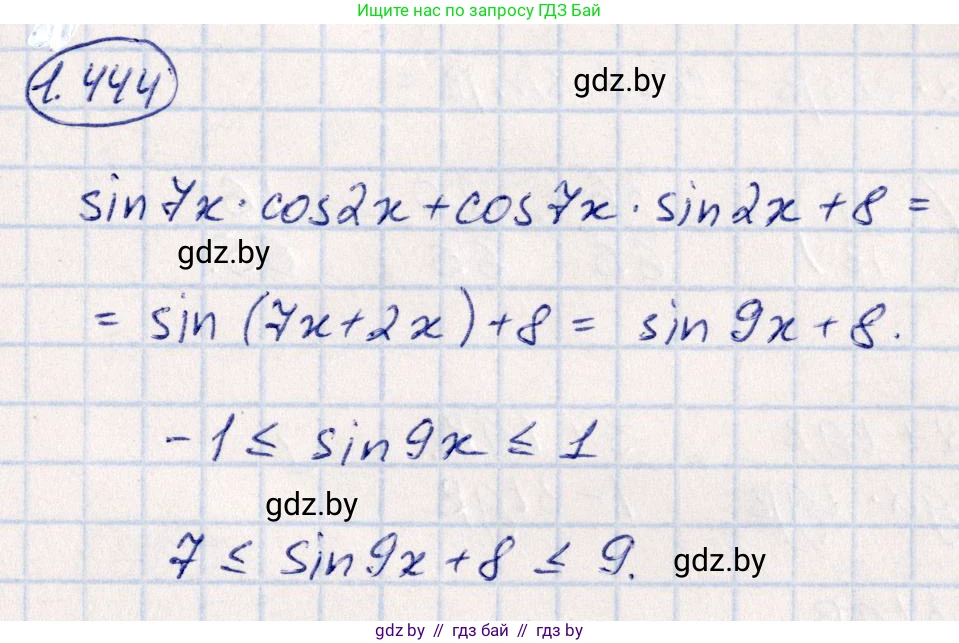 Ищите нас по запросу ГДЗ Бай
1.444
gdz.by
sin7x·cos2x+cos7x·sin2x+8=
gdz.by
= sin(7x+2x)+8= sin9x+8.
-1≤sin9x≤1
gdz.by
7≤sin9x+8≤9.
gdz.by
gdz.by // гдз бай // gdz.by